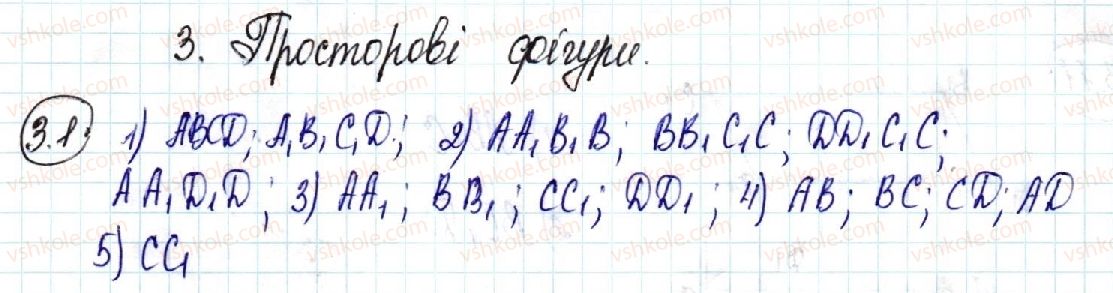 3. Просторові фігури.
3.1. 1) ABCD; A₁B₁C₁D₁; 2) AA₁B₁B; BB₁C₁C; DD₁C₁C;
AA₁D₁D; 3) AA₁; BB₁; CC₁; DD₁; 4) AB; BC; CD; AD
5) CC₁